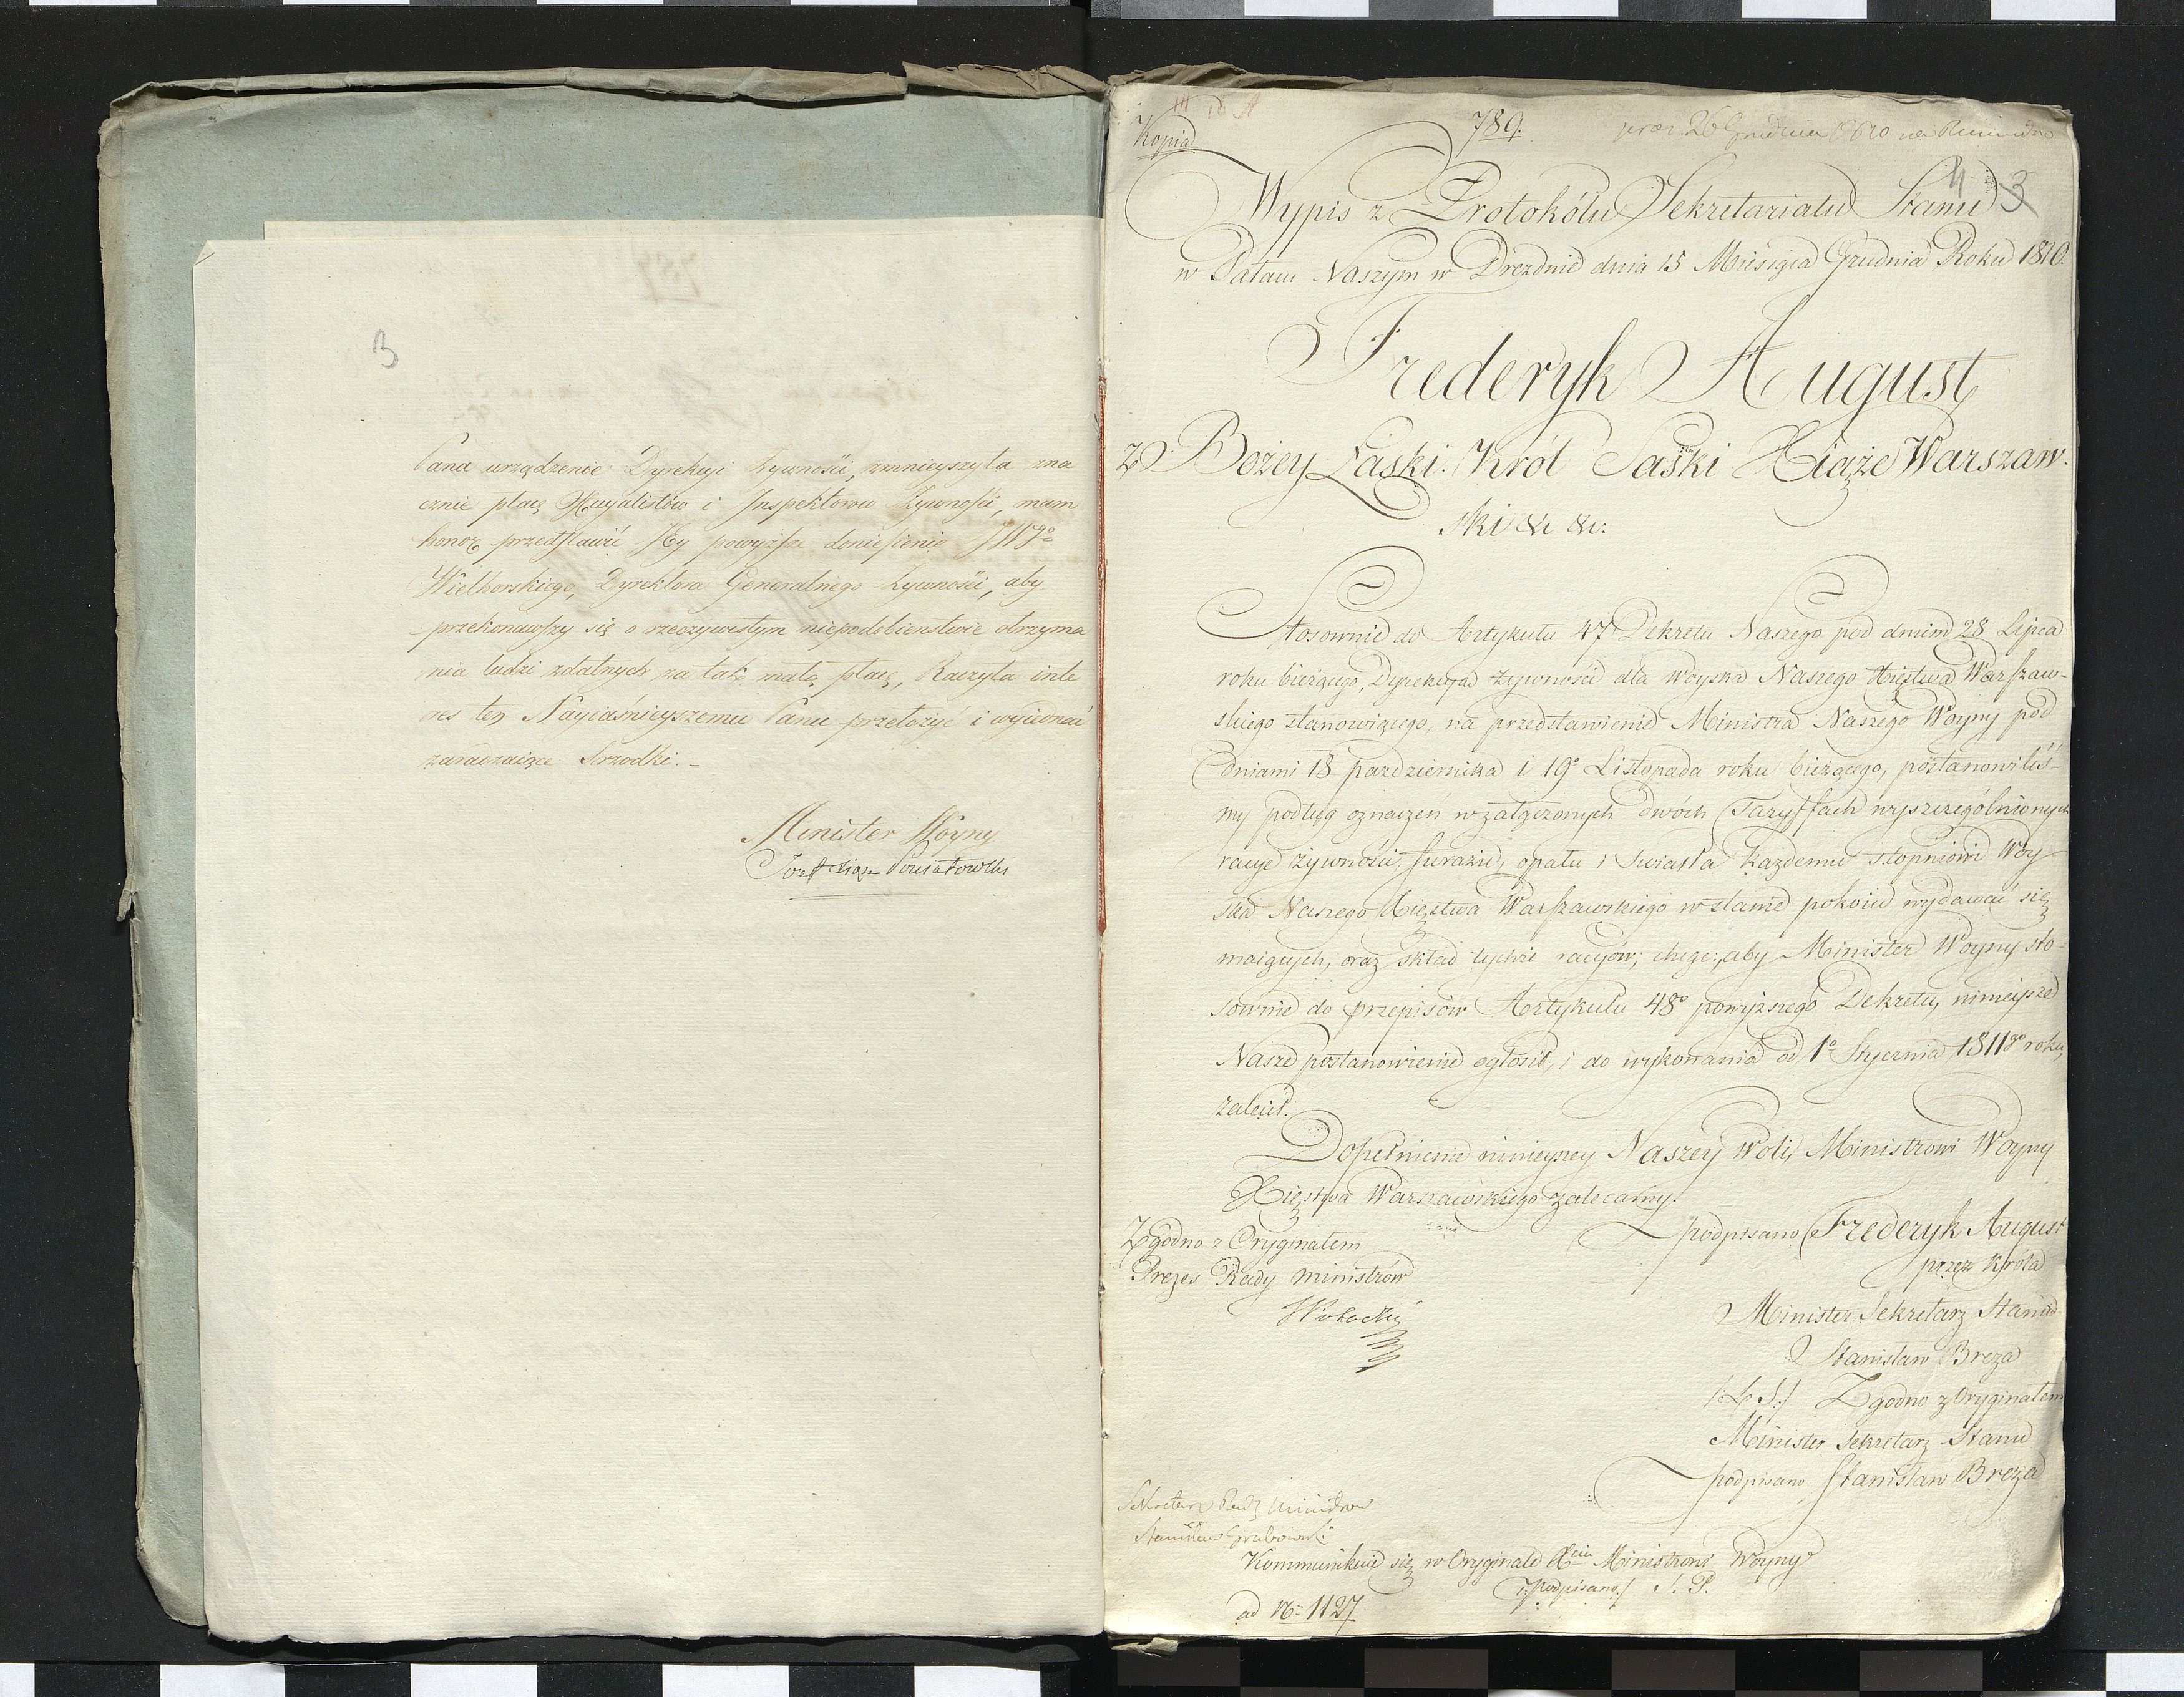 3
Pana urządzenie Dyrekcyi Żywności, zmnieyszyła zna
cznie płacę Officyalistów i Inspektorow Żywności, mam
honor przedstawić Jey powyższe doniesienie JWgo
Wielhorskiego, Dyrektora Generalnego Żywności, aby
przekonawszy się o rzeczywistym niepodobienstwie otrzyma
nia ludzi zdatnych za tak małą płacę, Raczyła inte
res ten Nayiaśnieyszemu Panu przełożyć i wyiednać
zaradzaiące Srzodki. -
Minister Woyny
Józef Xiąże Poniatowski
Kopia
789.
26 Grudnia 1810 na
4 3
Wypis z Protokółu Sekretariatu Stanu
w Pałacu Naszym w Dreznie dnia 15 Miesiąca Grudnia Roku 1810.
Frederyk August
z Bożey Łaski. Król Saski Xiąże Warszaw.
ski &c &c:
Stosownie do Artykułu 47 Dekretu Naszego pod dniem 28 Lipca
roku bieżącego, Dyrekcyą żywności dla woyska Naszego Xięstwa Warszaw-
skiego stanowiącego, na przedstawienie Ministra Naszego Woyny pod
Dniami 18 pazdziernika i 19o Listopada roku bieżącego, postanowiliś-
my podług oznaczeń w załączonych dwóch Taryffach wyszczególnionych
racye żywności, furażu, opału i Swiatła każdemu stopniowi Woy-
ska Naszego Xięstwa Warszawskiego w stanie pokoiu wydawać się
maiących, oraz skład tychże racyów; chcąc, aby Minister Woyny sto-
sownie do przepisów Artykułu 48o powyższego Dekretu, ninieysze
Nasze postanowienie ogłosił, i do wykonania od 1o Stycznia 1811go roku,
zalecił.
Dopełnienie ninieyszey Naszey Woli, Ministrowi Woyny
Xięstwa Warszawskiego zalecamy.
Zgodno z Oryginałem
Prezes Rady Ministrów
podpisano Frederyk August
przez Króla
Minister Sekretarz Stanu
Stanisław Breza
/L.S./ Zgodno z Oryginałem
Minister Sekretarz Stanu
podpisano Stanisław Breza
Sekretarz Rady Ministrow
Stanisław Grabowski
Kommunikuie się w Oryginale Xciu Ministrowi Woyny
/:podpisano:/ S. P.
ad No 1127